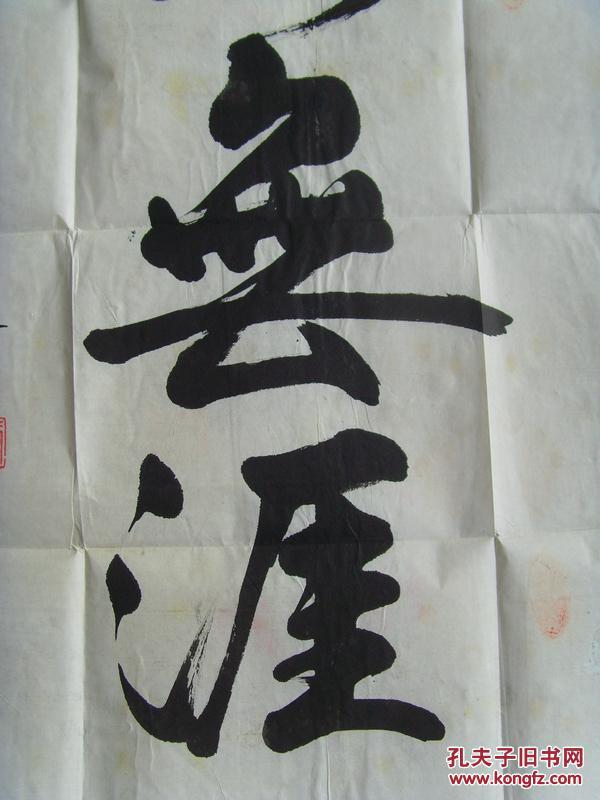 無
涯
孔夫子旧书网
www.kongfz.com